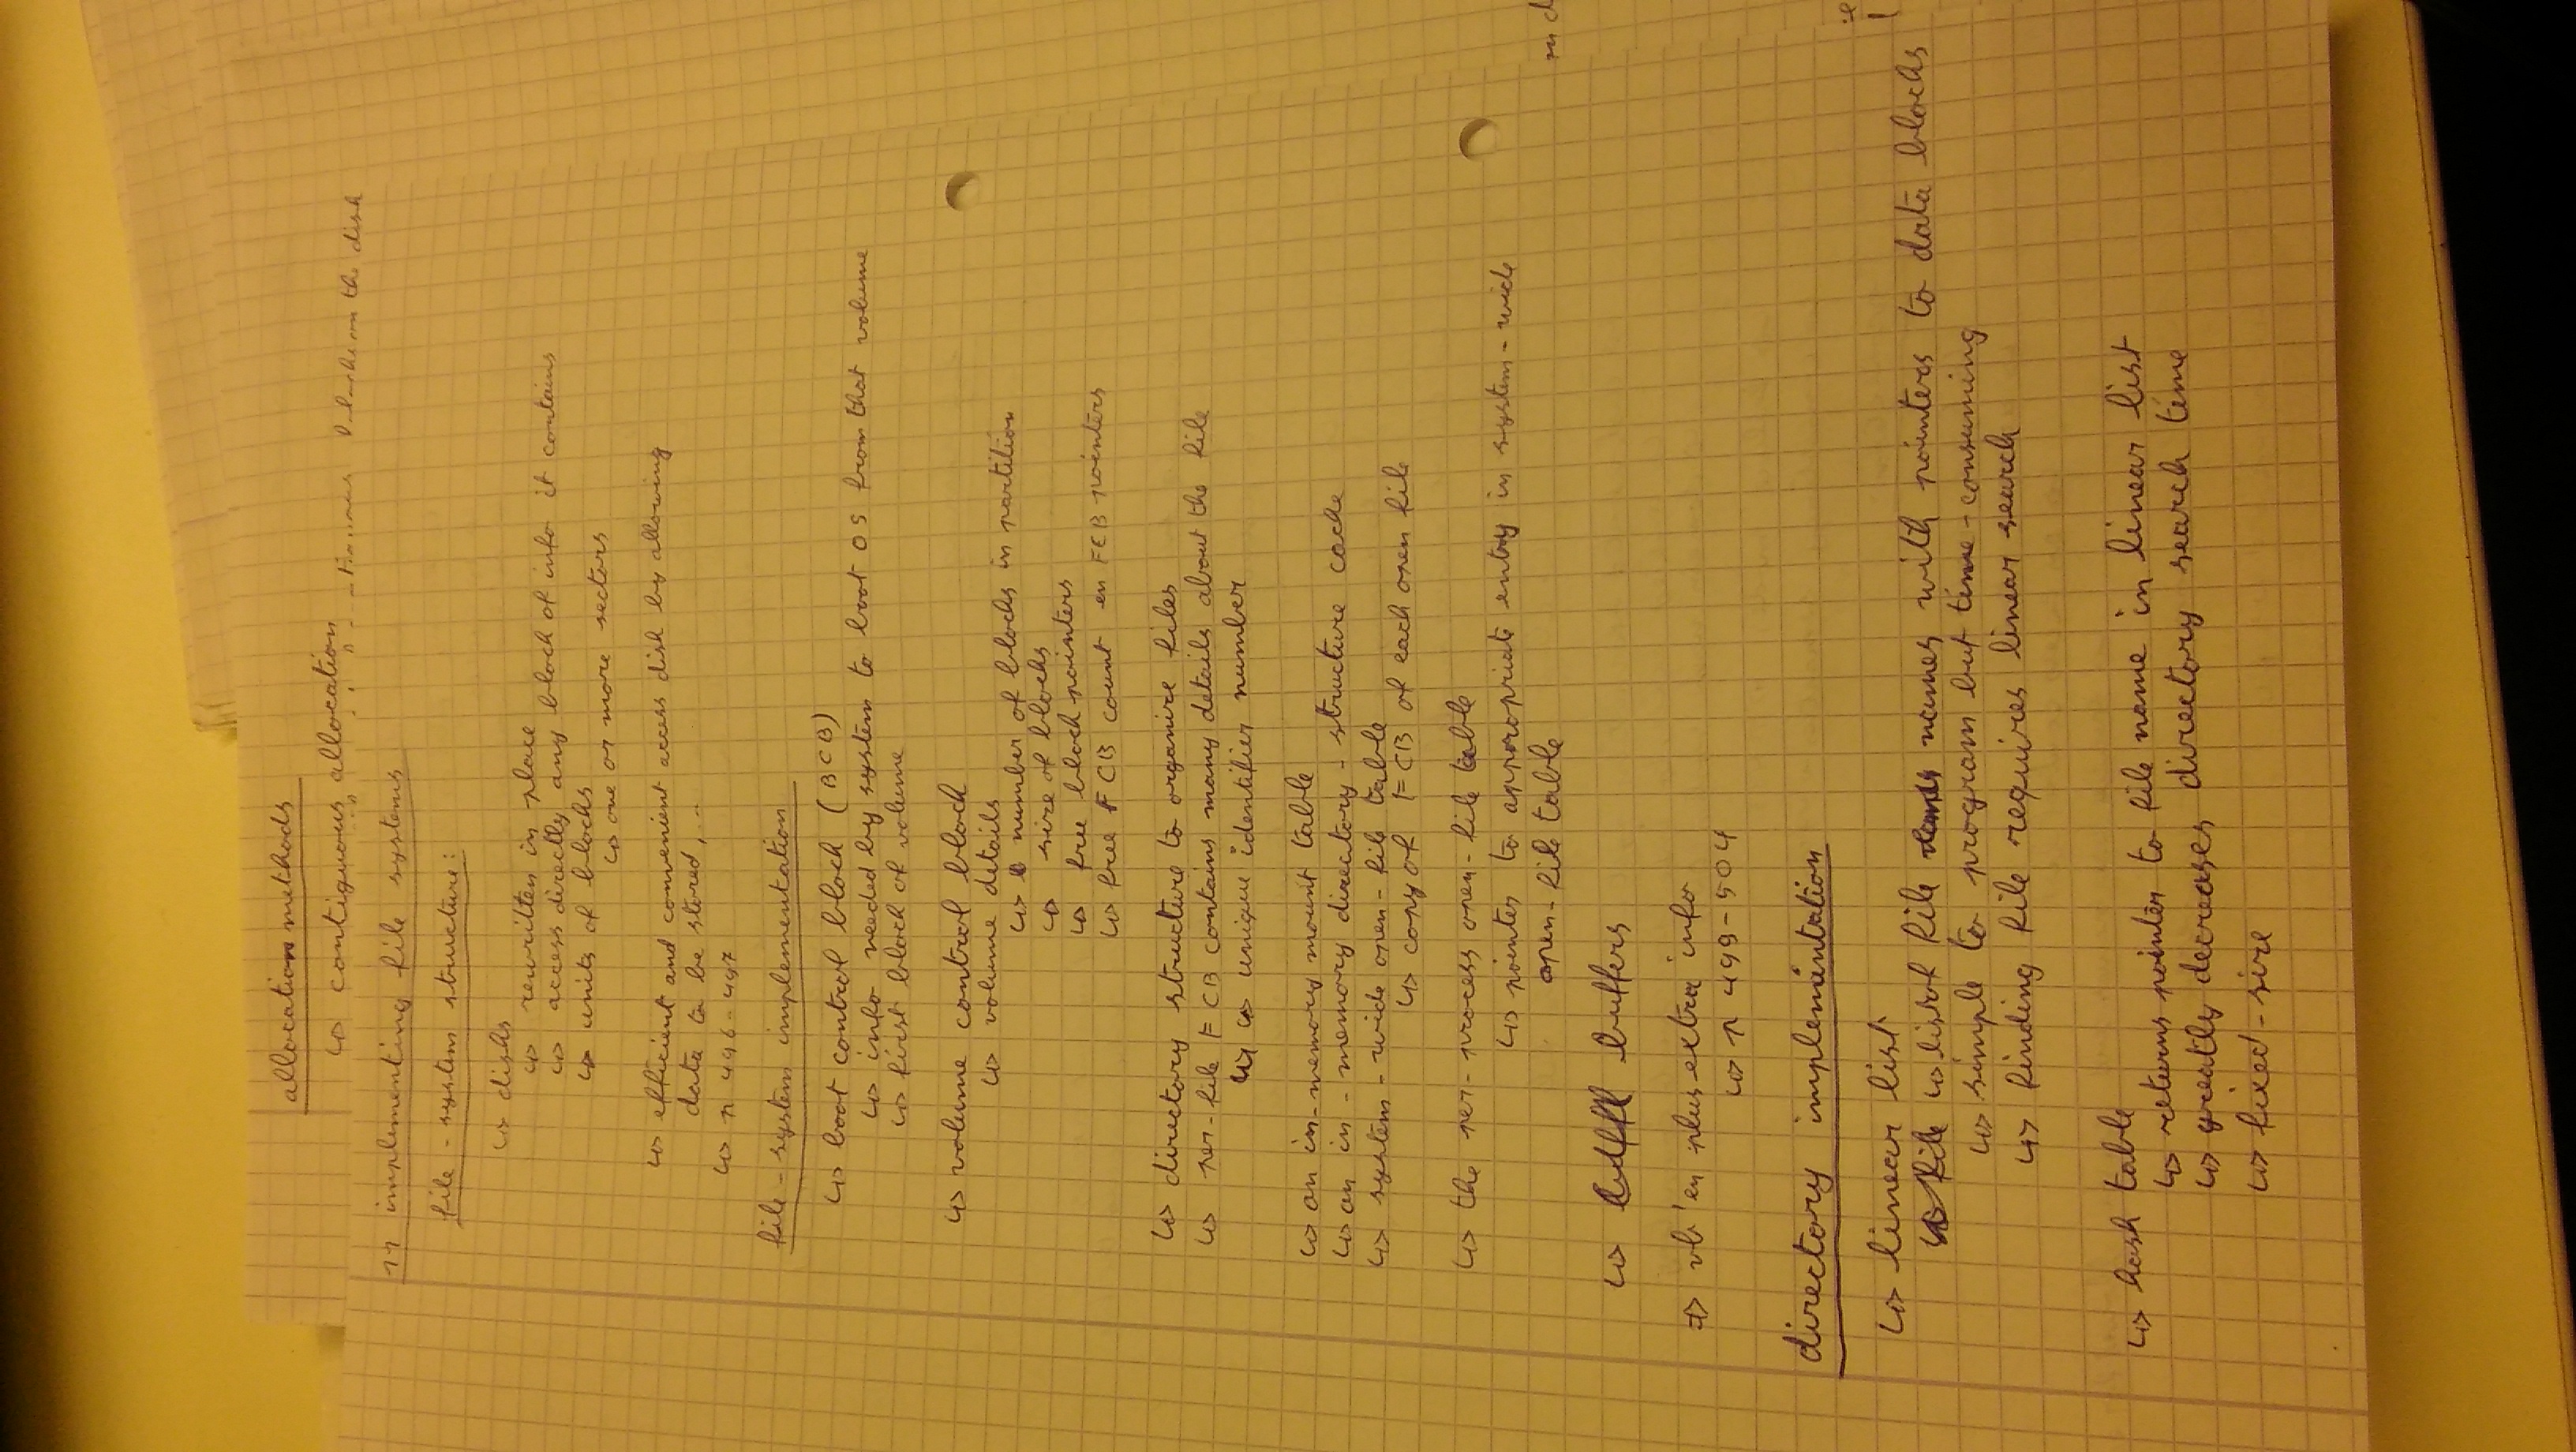 allocation methods
↳ contiguous allocation
the disk
11 implementing file systems
file-system structure:
↳ disks
↳ rewritten in place
↳ access directly any block of info it contains
↳ units of blocks
↳ one or more sectors
↳ efficient and convenient access disk by allowing
data to be stored, ...
↳ p 496-497
file-system implementation
↳ boot control block (BCB)
↳ info needed by system to boot OS from that volume
↳ first block of volume
↳ volume control block
↳ volume details
↳ number of blocks in partition
↳ size of blocks
↳ free block pointers
↳ free FCB count en FCB pointers
↳ directory structure to organize files
↳ per-file FCB contains many details about the file
↳ unique identifier number
↳ an in-memory mount table
↳ an in-memory directory-structure cache
↳ system-wide open-file table
↳ copy of FCB of each open file
↳ the per-process open-file table
↳ pointer to appropriate entry in system-wide
open-file table
↳ buffers
⇒ vb'en plus extra info
↳ p 499-504
directory implementation
↳ linear list
↳ list of file names with pointers to data blocks
↳ simple to program but time-consuming
↳ finding file requires linear search
↳ hash table
↳ returns pointer to file name in linear list
↳ greatly decreases directory search time
↳ fixed-size